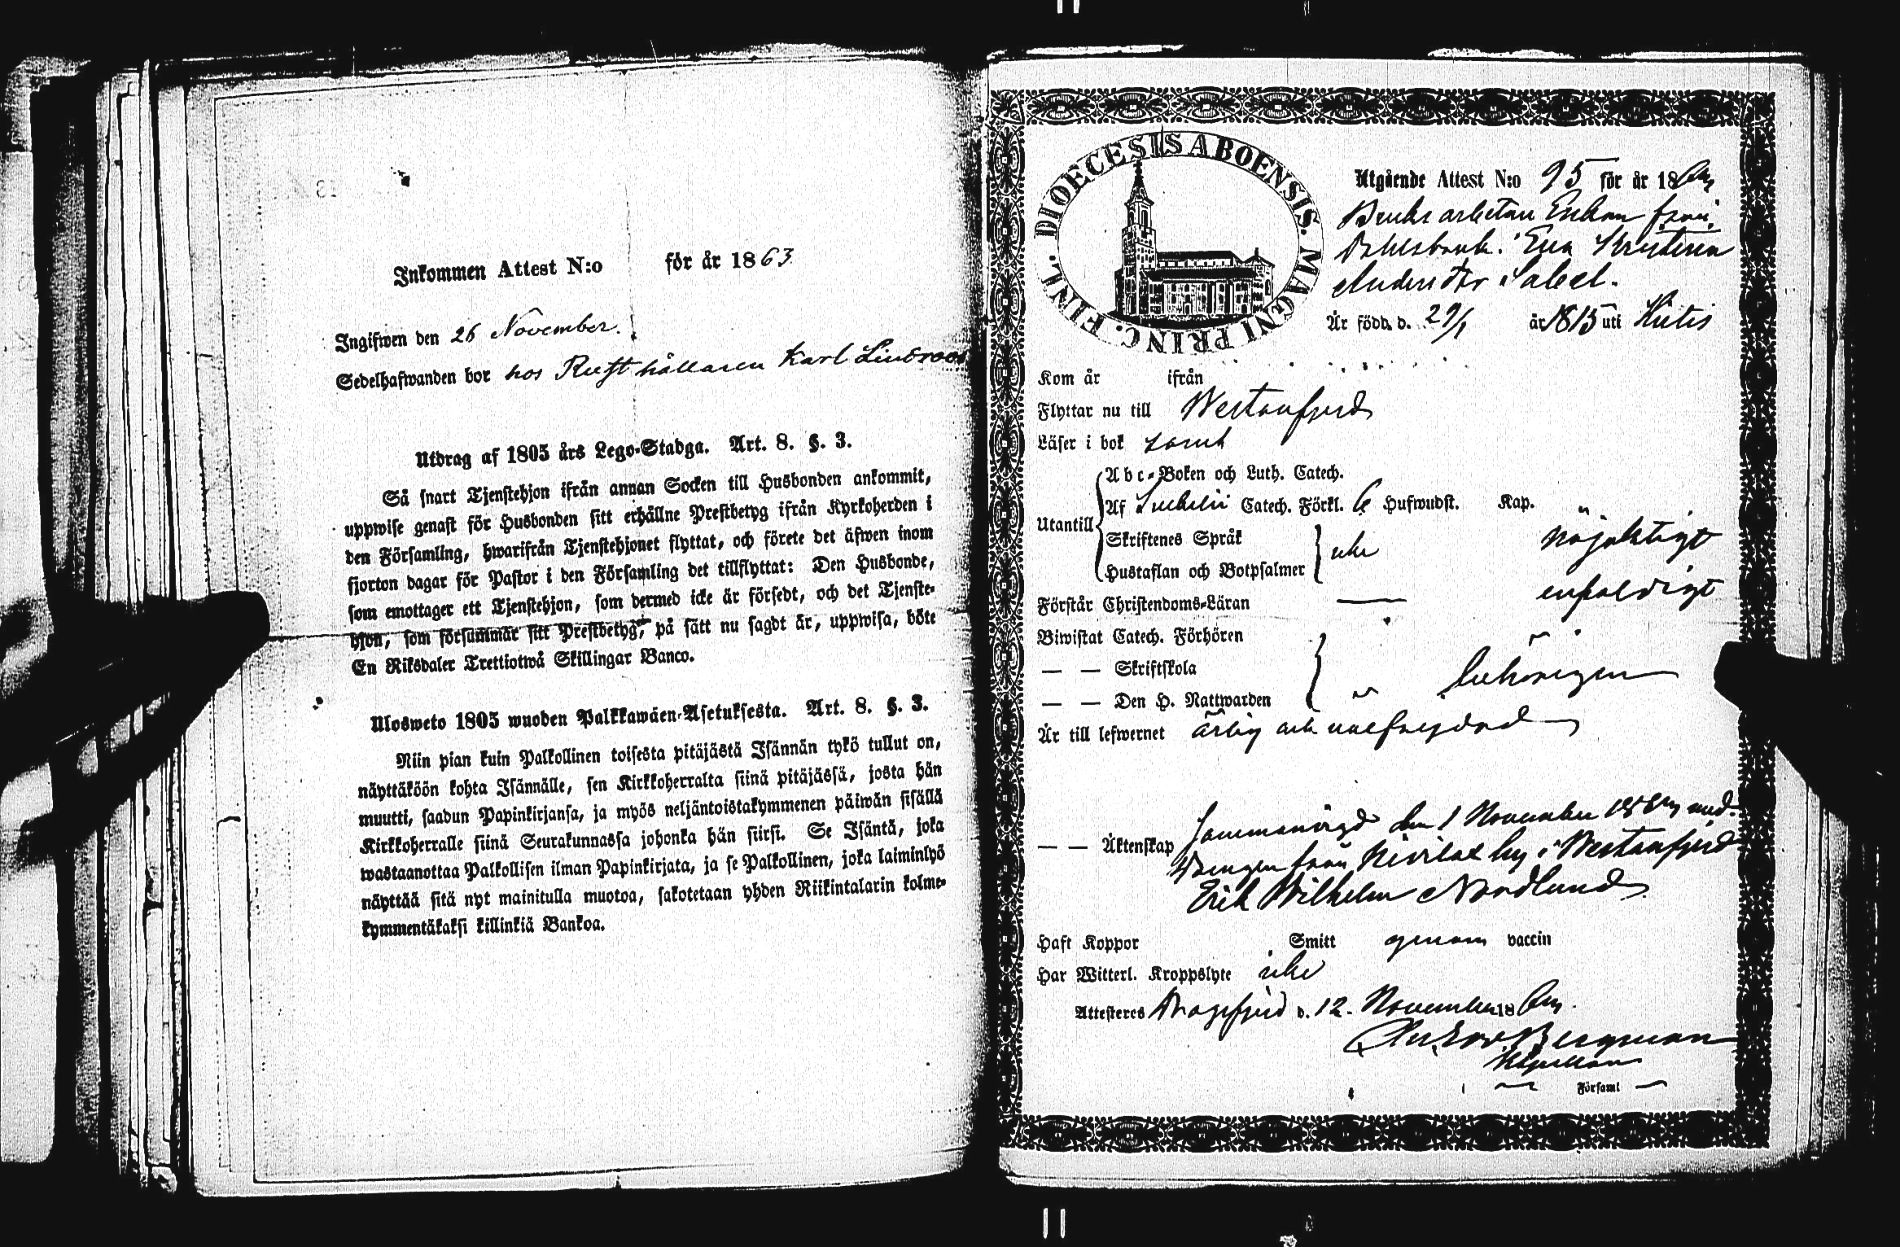 Inkommen Attest N:o för år 1863
Ingifwen den 26 November.
Sedelhafwanden bor hos Rusthållaren Karl Lindroos
Utdrag af 1805 års Lego-Stadga. Art. 8. §. 3.
Så snart Tjenstehjon ifrån annan Socken till Husbonden ankommit,
uppwise genast för Husbonden sitt erhållne Prestbetyg ifrån Kyrkoherden i
den Församling, hwarifrån Tjenstehjonet flyttat, och förete det äfwen inom
fjorton dagar för Pastor i den Församling det tillflyttat: Den Husbonde,
som emottager ett Tjenstehjon, som dermed icke är försedt, och det Tjenste-
hjon, som försummar sitt Prestbetyg, på sätt nu sagdt är, uppwisa, böte
En Riksdaler Trettiotwå Skillingar Banco.
Ulosweto 1805 wuoden Palkkawäen-Asetuksesta. Art. 8. §. 3.
Niin pian kuin Palkollinen toisesta pitäjästä Isännän tykö tullut on,
näyttäköön kohta Isännälle, sen Kirkkoherralta siinä pitäjässä, josta hän
muutti, saadun Papinkirjansa, ja myös neljäntoistakymmenen päiwän sisällä
Kirkkoherralle siinä Seurakunnassa johonka hän siirsi. Se Isäntä, joka
wastaanottaa Palkollisen ilman Papinkirjata, ja se Palkollinen, joka laiminlyö
näyttää sitä nyt mainitulla muotoa, sakotetaan yhden Riikintalarin kolme-
kymmentäkaksi killinkiä Bankoa.
DIOECESIS ABOENSIS. MAGNI PRINC. FINL.
Utgående Attest N:o 95 för år 18
Bruks arbetare Enkan från
Dahlsbruk. Eva Kristina
Anders dtr Sabel.
Är född d. 29/1 år 1815 uti Hitis
Kom år ifrån
Flyttar nu till Westanfjerd
Läser i bok samt
Utantill
Abc-Boken och Luth. Catech.
Af Svebelii Catech. Förkl. 6 Hufwudst. Kap.
Skriftenes Språk
Hustaflan och Botpsalmer icke nöjaktigt
Förstår Christendoms-Läran — enfaldigt
Biwistat Catech. Förhören
— — Skriftskola
— — Den H. Nattwarden behörigen
Är till lefwernet ärlig och välfrejdad
— — Äktenskap Sammanvigd den 1 November med
Drengen från Nivelax by i Westanfjerd
Erik Wilhelm Nordlund.
Haft Koppor Smitt genom vaccin
Har Witterl. Kroppslyte icke
Attesteras Dragsfjerd d. 12. November 18
Bergman
Kapellan
Församl